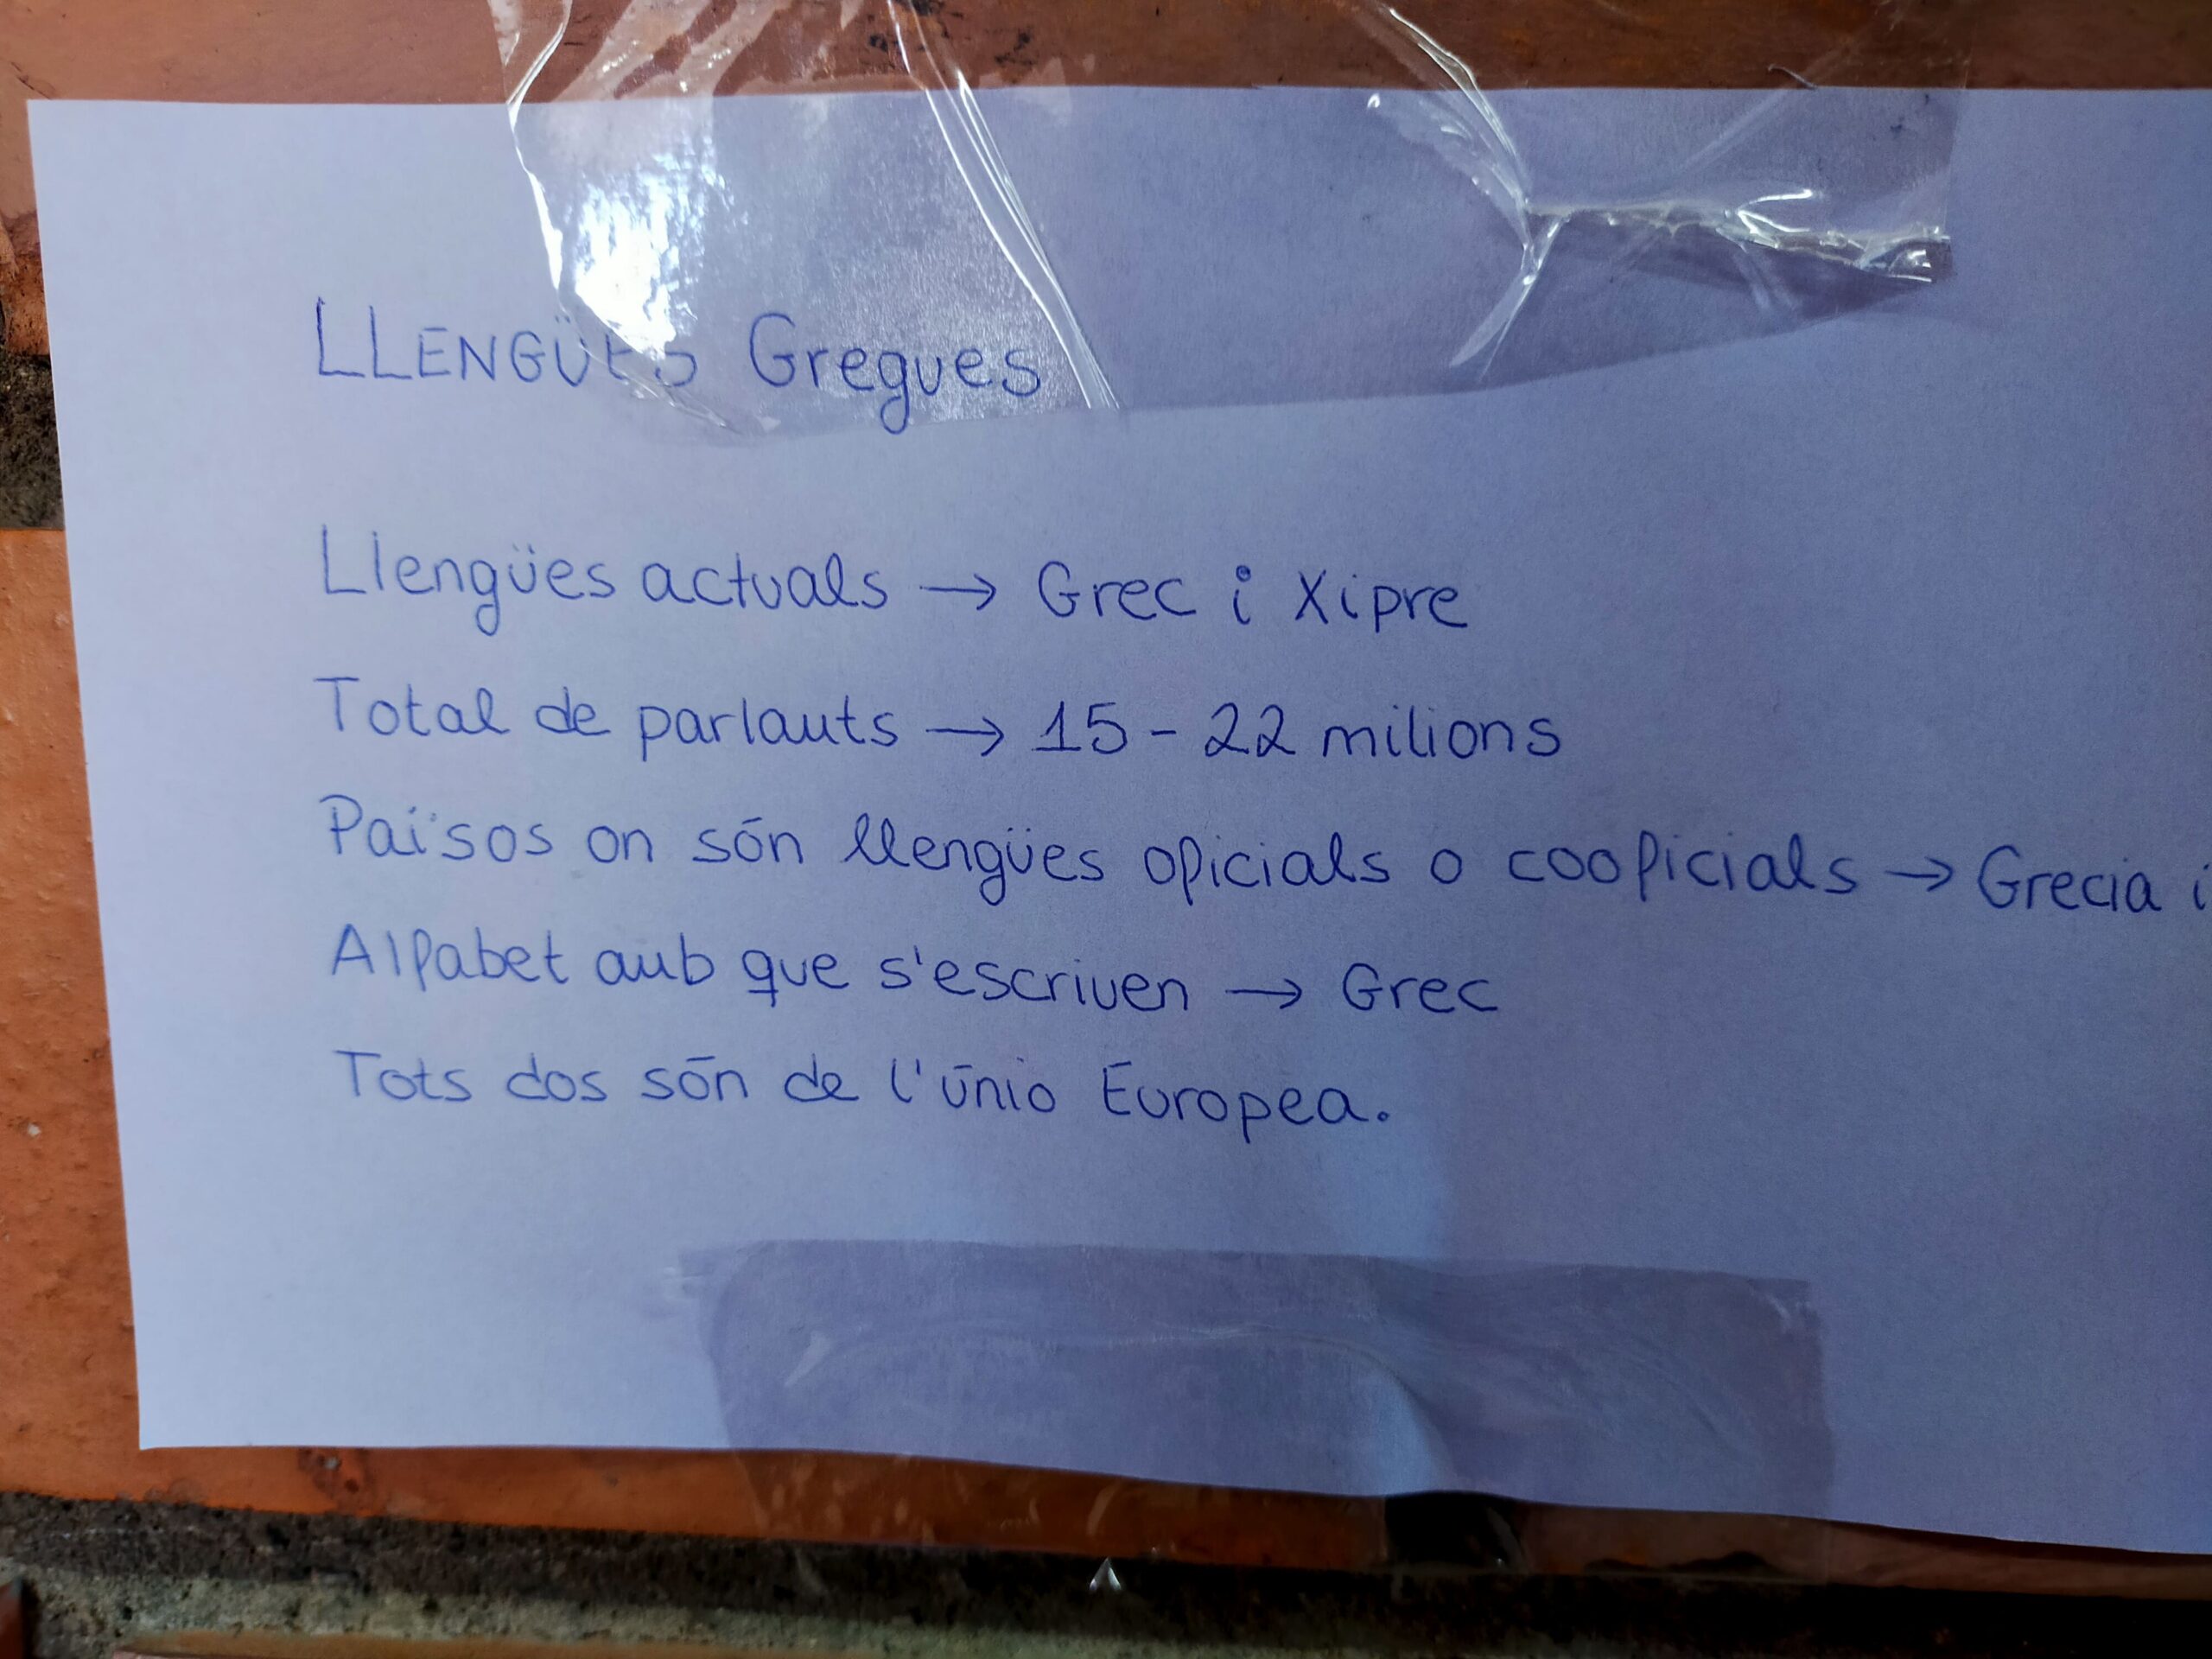 LLENGÜES Gregues
Llengües actuals → Grec i Xipre
Total de parlants → 15 - 22 milions
Països on són llengües oficials o cooficials → Grecia i
Alfabet amb que s'escriven → Grec
Tots dos són de l'únio Europea.